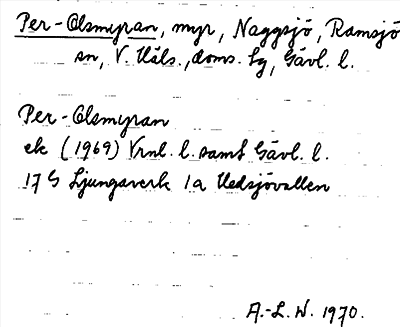 Per-Olsmyran, myr, Naggsjö, Ramsjö
sn, V. Häls., doms. Lg, Gävl. l.
Per-Olsmyran
ek (1969) Vrnl. l. samt Gävl. l.
17 G Ljungaverk 1a Hedsjövallen
A.-L. W. 1970.